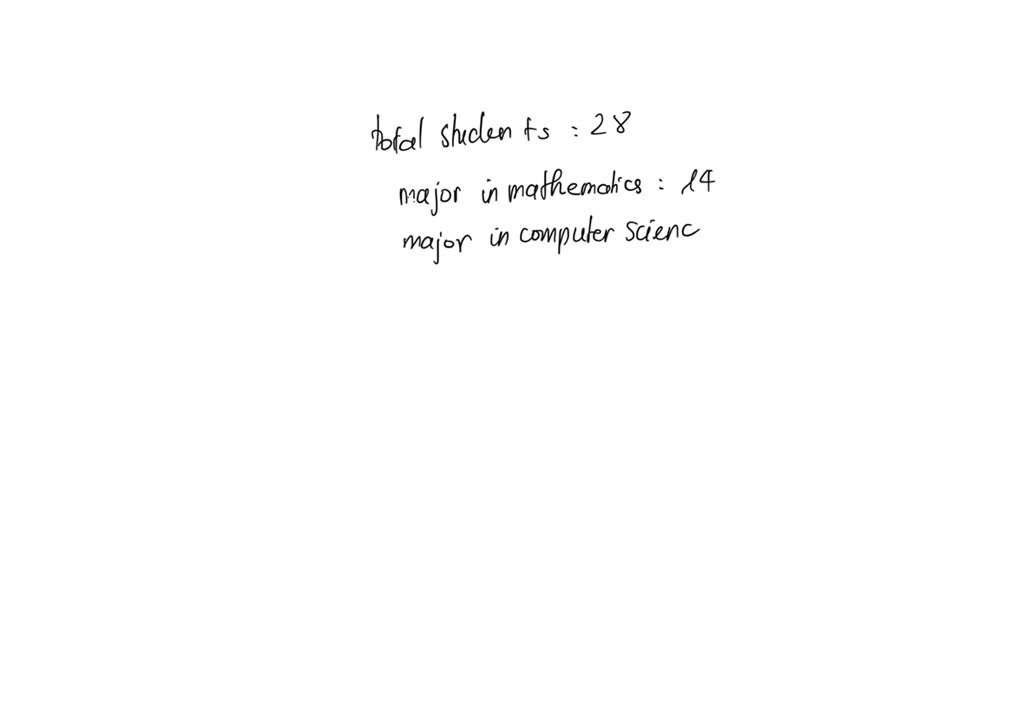 total students : 28
major in mathematics : 14
major in computer scienc